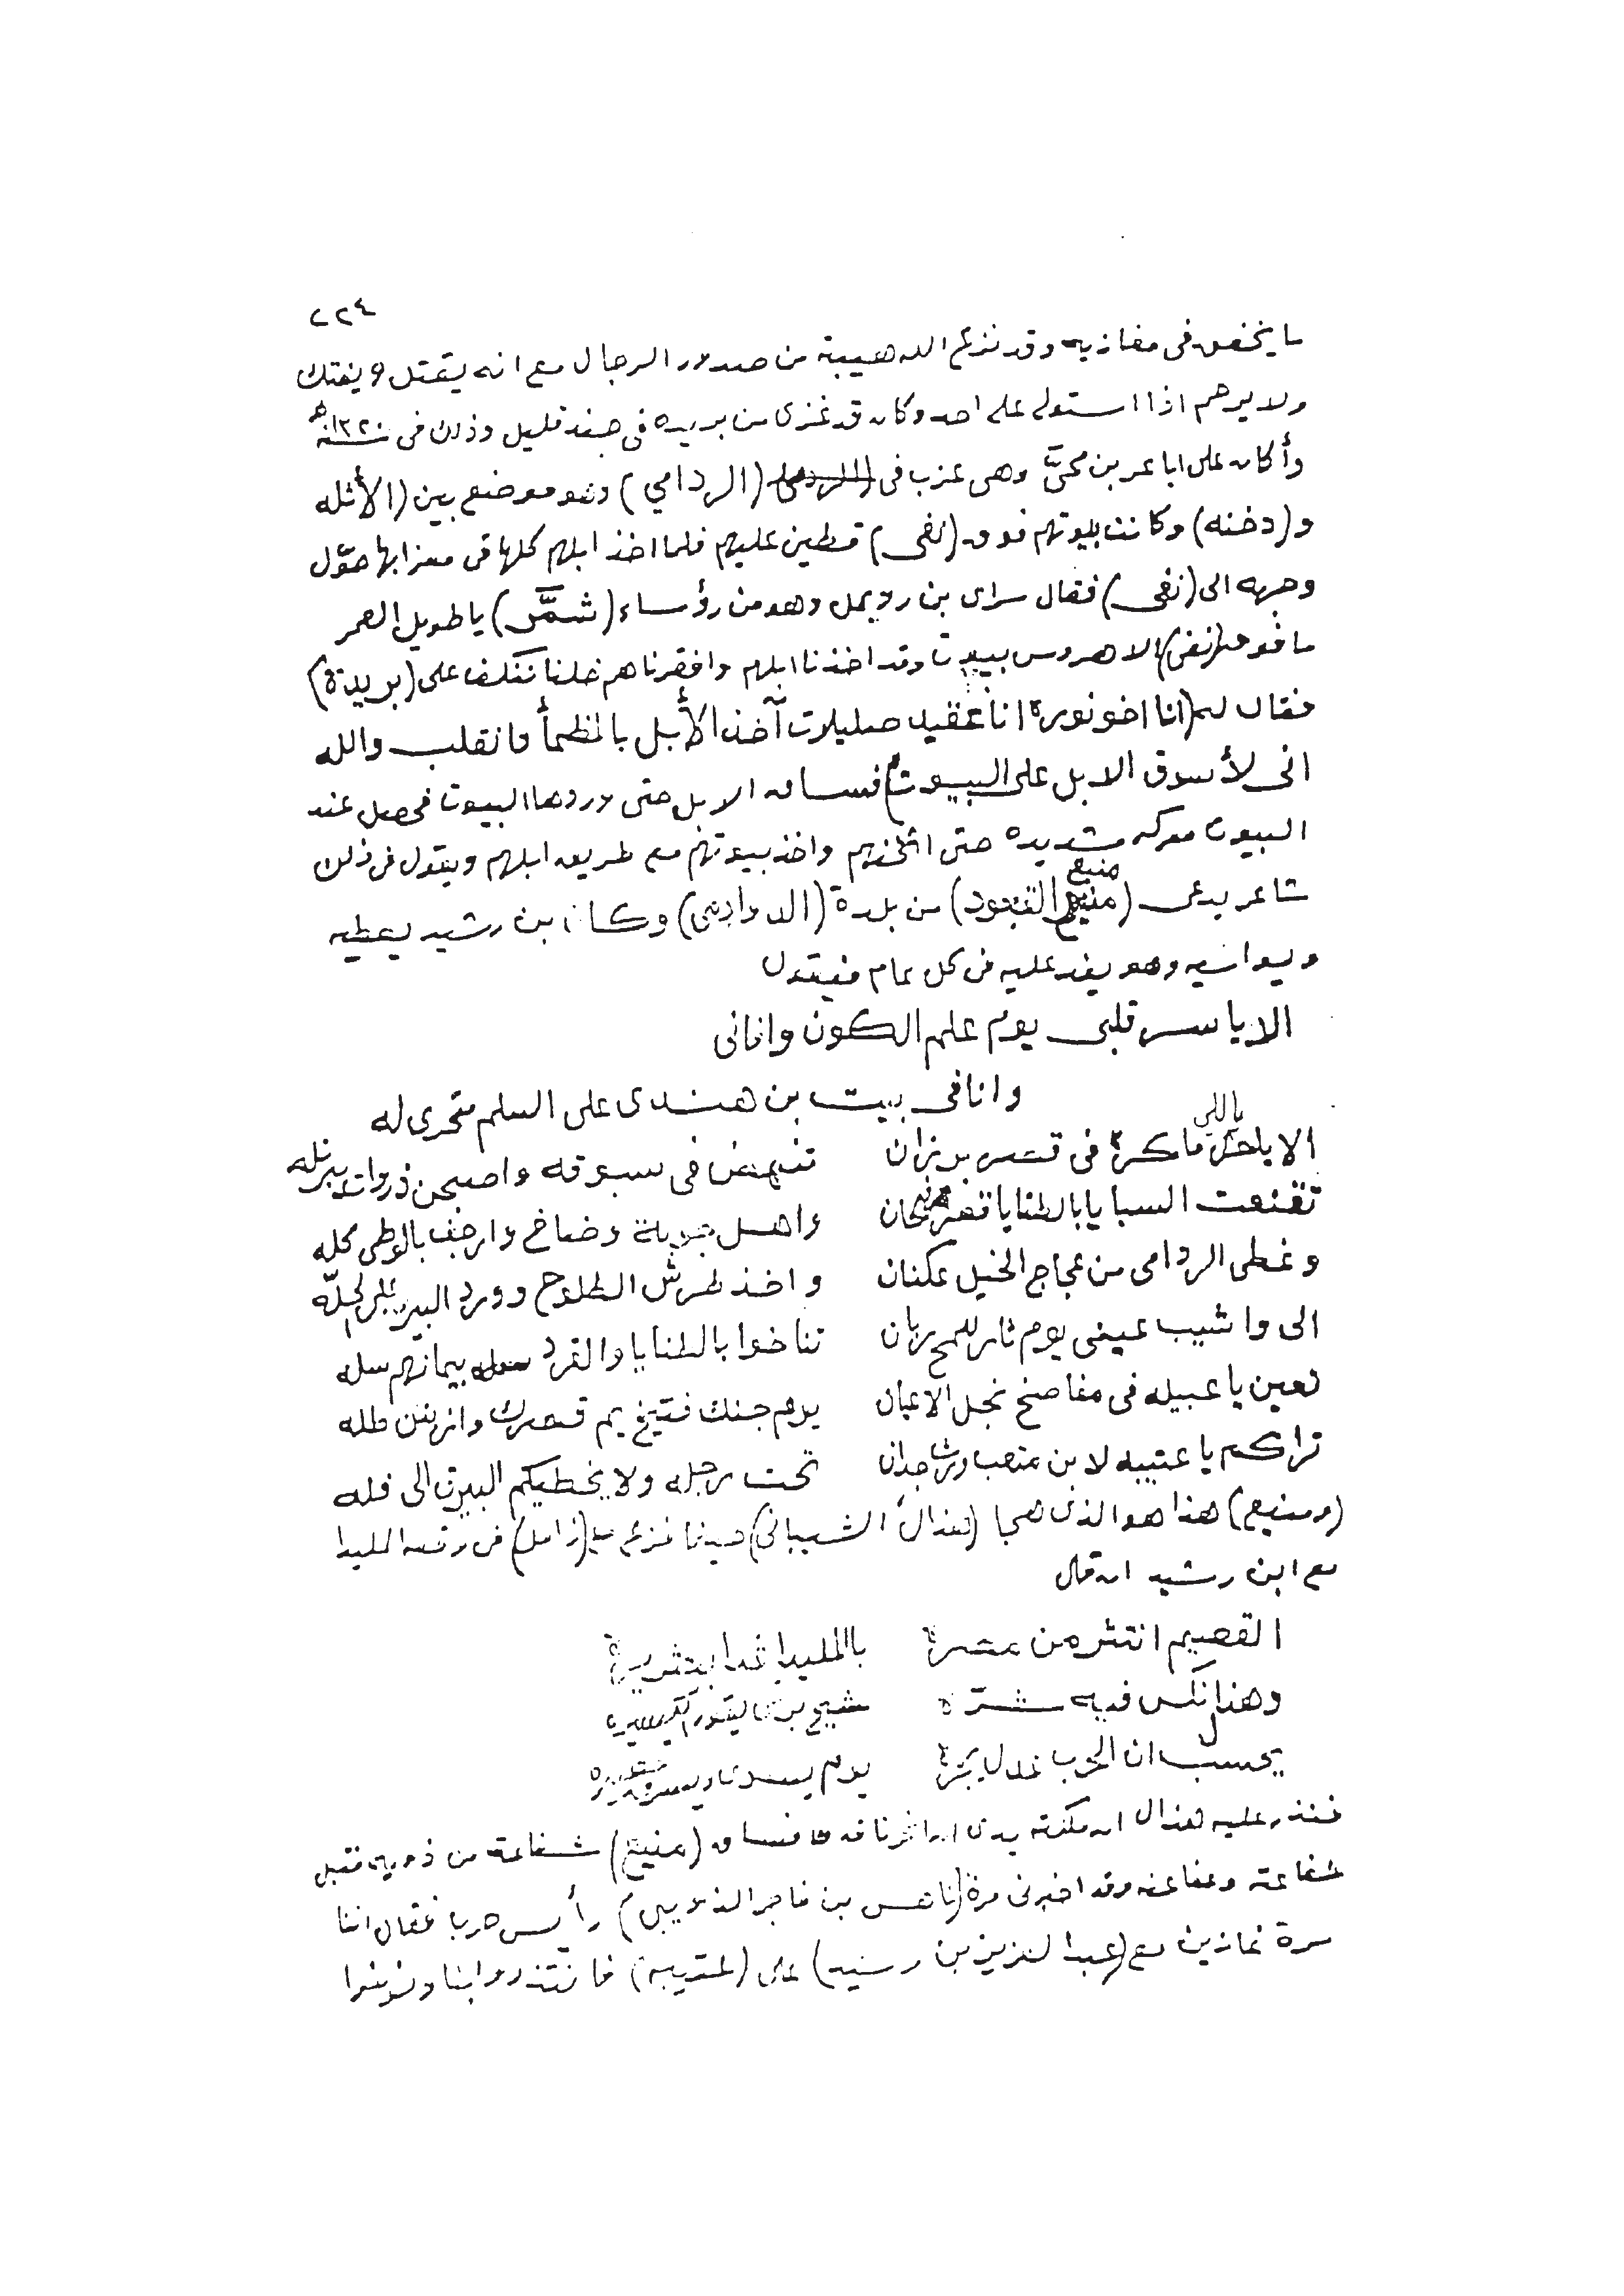 ٢٢٤
ما يخفق فى مغازيه وقد نزع الله هيبة من صدور الرجال مع انه يقتل ويفتك
ولا يرحم اذا استولى على احد وكان قد غزى من بريده فى جند قليل وذلك فى سنة ١٣٢٠هـ
وأكان على ابا عمر بن محيّ وهى عزب فى (الردامي) وهو موضع بين (الأثله
و(دخنه) وكانت بيوتهم فوق (نفى) قطين عليهم فلما اخذ ابلهم كلها فى معزابها حوّل
وجهه الى (نفى) فقال سراى بن زويمل وهو من رؤساء (شمَّر) ياطويل العمر
ما فوق (نفى) الا هروس بيوت وقد اخذنا ابلهم وافقرناهم خلنا ننكف على (بريدة)
فقال له (انا اخو نوره انا عقيد صليلات آخذ الأبل بالمظمأ وانقلب والله
انى لأسوق الابل على البيوت) فساق الابل حتى اوردها البيوت فحصل عند
البيوت معركه شديده حتى اثخنهم واخذ بيوتهم مع طريف ابلهم ويقول فى ذلك
شاعر يدعى (منيع القعود) من بلدة (الدوادمى) وكان ابن رشيد يعطيه
ويواسيه وهو يفد عليه فى كل عام فيقول
الا يا سر قلبى يوم علم الكون وافانى
وانا فى بيت بن هندى على السلم متحرى له
الا ياللي ماكره فى قصر برزان
تنهض فى سبوقه واصبحن ذروات
تقنعت السبايا بالطنايا
واهل وضاخ وارجف بالوطى كله
وغطى الردامى من عجاج الخيل عكنان
واخذ طرش الطلوح وورد البير
الى واشيب عينى يوم ثار للمح
تناخوا بالطنايا والقرد بيمانهم سله
تعين يا عبيله فى مفاضخ نجل الاعيان
يوم جنك يم قصرك وانزلن ظله
تراكم يا عتيبه لا بن متعب
تحت رجله ولا يخطيكم البيرق الى فله
(ومنيع) هذا هو الذى هجا (هذال الشيبانى) حينما فزع مع (زامل) فى وقعة المليدا
مع ابن رشيد اذ قال
القصيم انتثر من عصره
بالمليدا غدا
وهذا نكس فيه شرّه
شيخ
يحسب ان الحرب
يوم
فنذر عليه هذال ان مكنته يدى فساق (منيع) شفاعة من ذويه فقبل
شفاعته وعفا عنه وقد اخبرنى مرة (ناهس بن فاجر الذويبى) رأيس حربا فقال اننا
مرة غازين مع (عبد العزيز بن رشيد) على (عتيبه) فانتذروا بنا